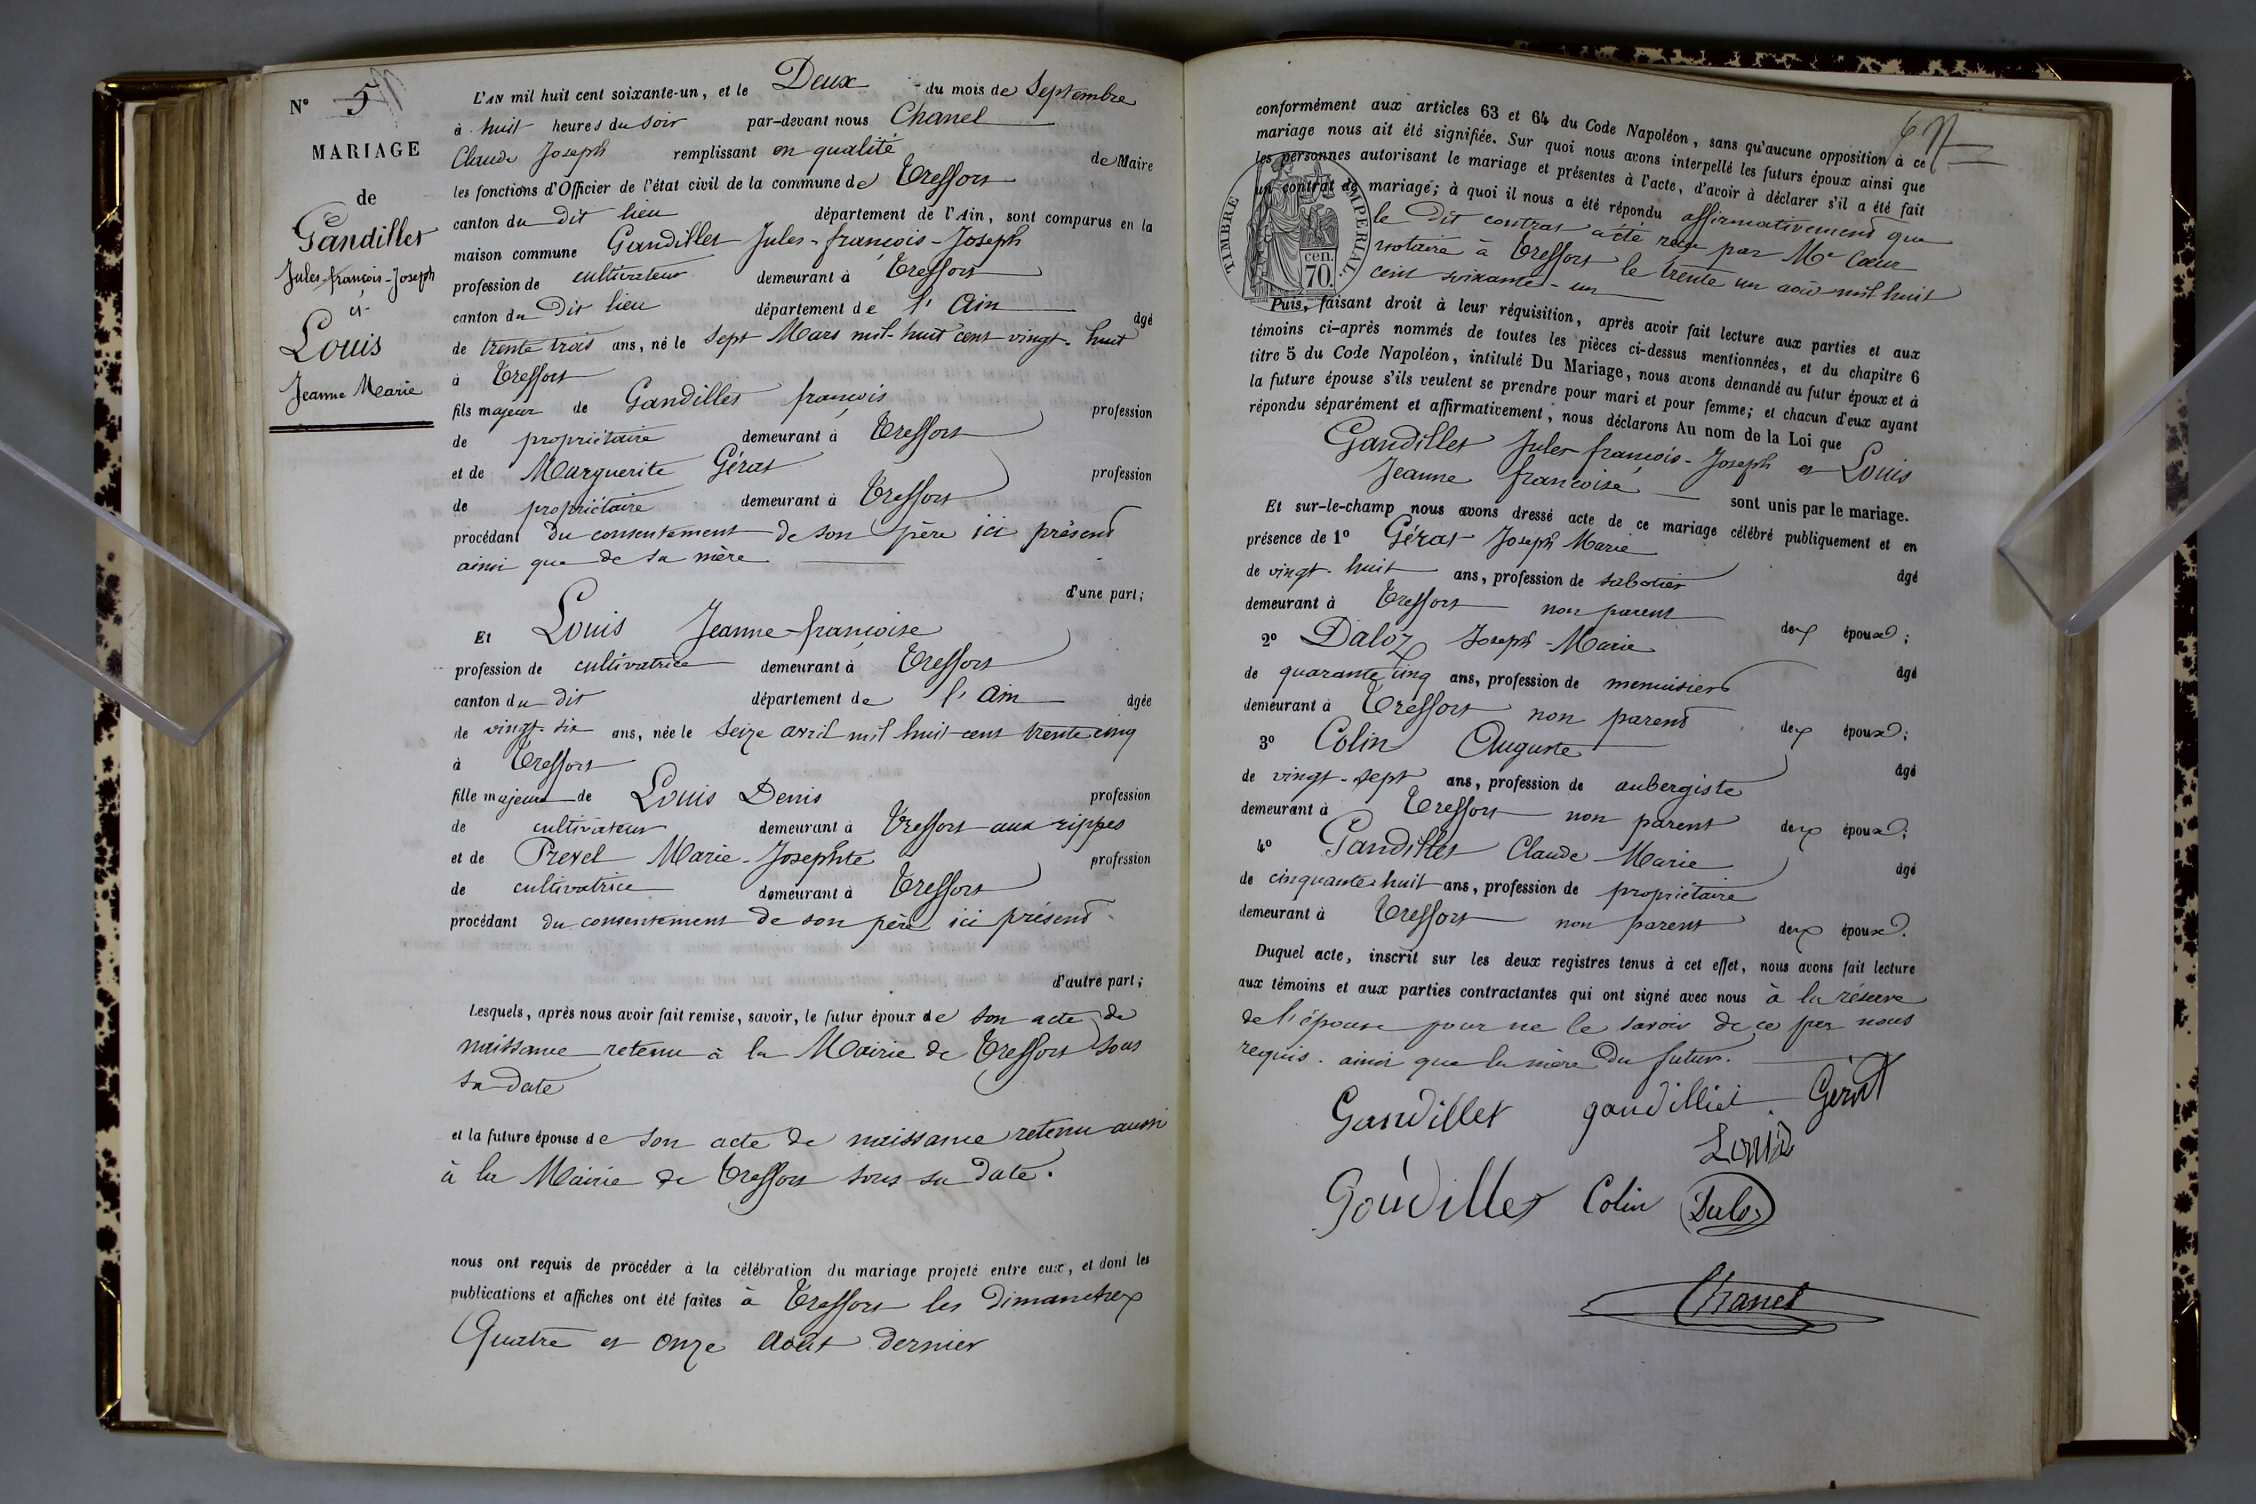 N° 5
MARIAGE
de
Gandillet
Jules-françois-Joseph
et
Louis
Jeanne Marie
L'AN mil huit cent soixante-un, et le Deux du mois de Septembre
à huit heures du soir par-devant nous Chanel
Claude Joseph remplissant en qualité de Maire
les fonctions d'Officier de l'état civil de la commune de Treffort
canton du dit lieu département de l'Ain, sont comparus en la
maison commune Gandillet Jules-françois-Joseph
profession de cultivateur demeurant à Treffort
canton du dit lieu département de l'Ain âgé
de trente trois ans, né le sept Mars mil-huit cent vingt-huit
à Treffort
fils majeur de Gandillet françois profession
de propriétaire demeurant à Treffort
et de Marguerite Gérat profession
de propriétaire demeurant à Treffort
procédant du consentement de son père ici présent
ainsi que de sa mère
d'une part;
Et Louis Jeanne-françoise
profession de cultivatrice demeurant à Treffort
canton du dit département de l'Ain âgée
de vingt-six ans, née le seize avril mil huit cent trente cinq
à Treffort
fille majeure de Louis Denis profession
de cultivateur demeurant à Treffort aux rippes
et de Prevel Marie-Josephte profession
de cultivatrice demeurant à Treffort
procédant du consentement de son père ici présent
d'autre part;
Lesquels, après nous avoir fait remise, savoir, le futur époux de son acte de
naissance retenu à la Mairie de Treffort sous
sa date
et la future épouse de son acte de naissance retenu aussi
à la Mairie de Treffort sous sa date.
nous ont requis de procéder à la célébration du mariage projeté entre eux, et dont les
publications et affiches ont été faites à Treffort les dimanches
Quatre et onze Août dernier
conformément aux articles 63 et 64 du Code Napoléon, sans qu'aucune opposition à ce
mariage nous ait été signifiée. Sur quoi nous avons interpellé les futurs époux ainsi que
les personnes autorisant le mariage et présentes à l'acte, d'avoir à déclarer s'il a été fait
un contrat de mariage; à quoi il nous a été répondu affirmativement que
le dit contrat acte reçu par Me Cœur
notaire à Treffort le trente un août mil huit
cent soixante-un
TIMBRE IMPERIAL.
cen.
70.
Puis, faisant droit à leur réquisition, après avoir fait lecture aux parties et aux
témoins ci-après nommés de toutes les pièces ci-dessus mentionnées, et du chapitre 6
titre 5 du Code Napoléon, intitulé Du Mariage, nous avons demandé au futur époux et à
la future épouse s'ils veulent se prendre pour mari et pour femme; et chacun d'eux ayant
répondu séparément et affirmativement, nous déclarons Au nom de la Loi que
Gandillet Jules françois-Joseph et Louis
Jeanne françoise sont unis par le mariage.
Et sur-le-champ nous avons dressé acte de ce mariage célébré publiquement et en
présence de 1° Gérat Joseph Marie âgé
de vingt-huit ans, profession de sabotier
demeurant à Treffort non parent des époux;
2° Daloz Joseph-Marie âgé
de quarante cinq ans, profession de menuisier
demeurant à Treffort non parent des époux;
3° Colin Auguste âgé
de vingt-sept ans, profession de aubergiste
demeurant à Treffort non parent des époux;
4° Gandillet Claude-Marie âgé
de cinquante huit ans, profession de propriétaire
demeurant à Treffort non parent des époux.
Duquel acte, inscrit sur les deux registres tenus à cet effet, nous avons fait lecture
aux témoins et aux parties contractantes qui ont signé avec nous à la réserve
de l'épouse pour ne le savoir de ce par nous
requis. ainsi que la mère du futur.
Gandillet gandilliet Gerat
Louis
Goudillet Colin Daloz
Chanel